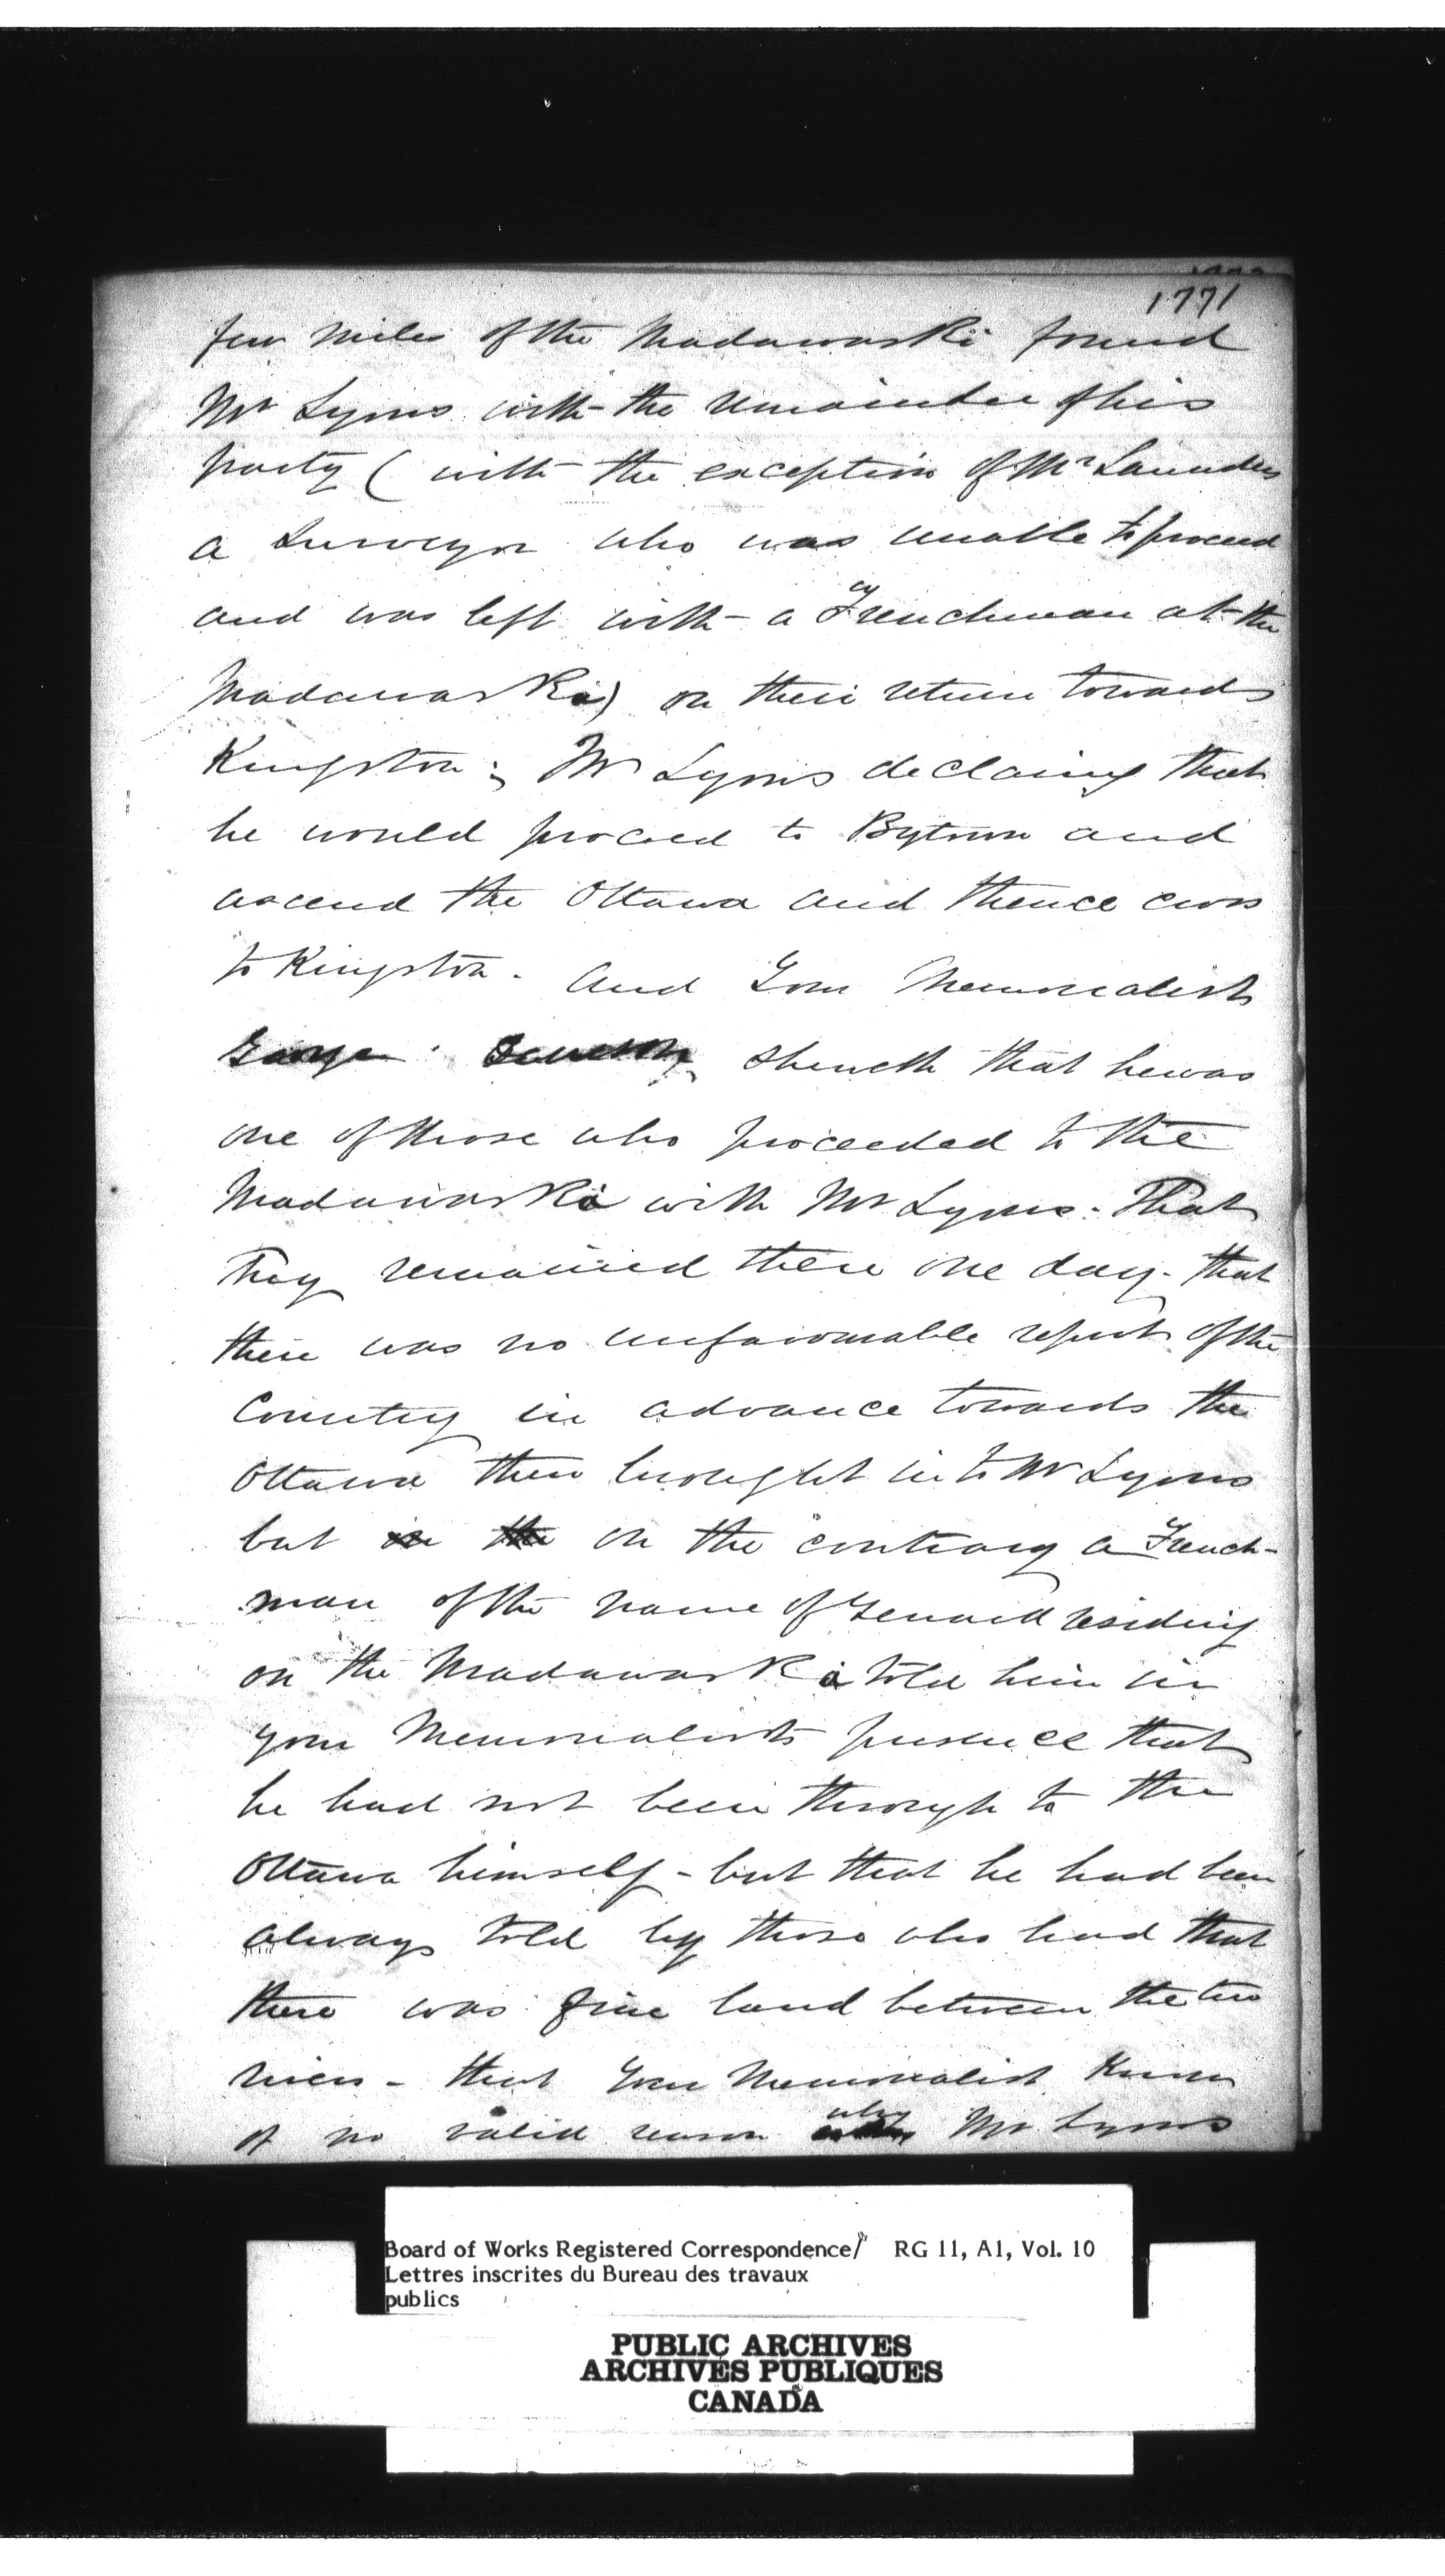 1771
few miles of the Madawaska found
Mr Lyons with the remainder of his
party ( with the exception of Mr Saunders
a Surveyor who was unable to proceed
and was left with a Frenchman at the
Madawaska) on their return towards
Kingston; Mr Lyons declaring that
he would proceed to Bytown and
ascend the Ottawa and thence cross
to Kingston. And Your Memorialist
George sheweth that he was
one of those who proceeded to the
Madawaska with Mr Lyons. That
they remained there one day. that
there was no unfavourable report of the
Country in advance towards the
Ottawa then brought in to Mr Lyons
but in the on the contrary a French-
man of the name of residing
on the Madawaska told him in
your Memorialists presence that
he had not been through to the
Ottawa himself - but that he had been
always told by those who had that
there was fine land between the two
rivers - that Your Memorialist knew
of no valid reason why Mr Lyons
Board of Works Registered Correspondence/ RG 11, A1, Vol. 10
Lettres inscrites du Bureau des travaux
publics
PUBLIC ARCHIVES
ARCHIVES PUBLIQUES
CANADA